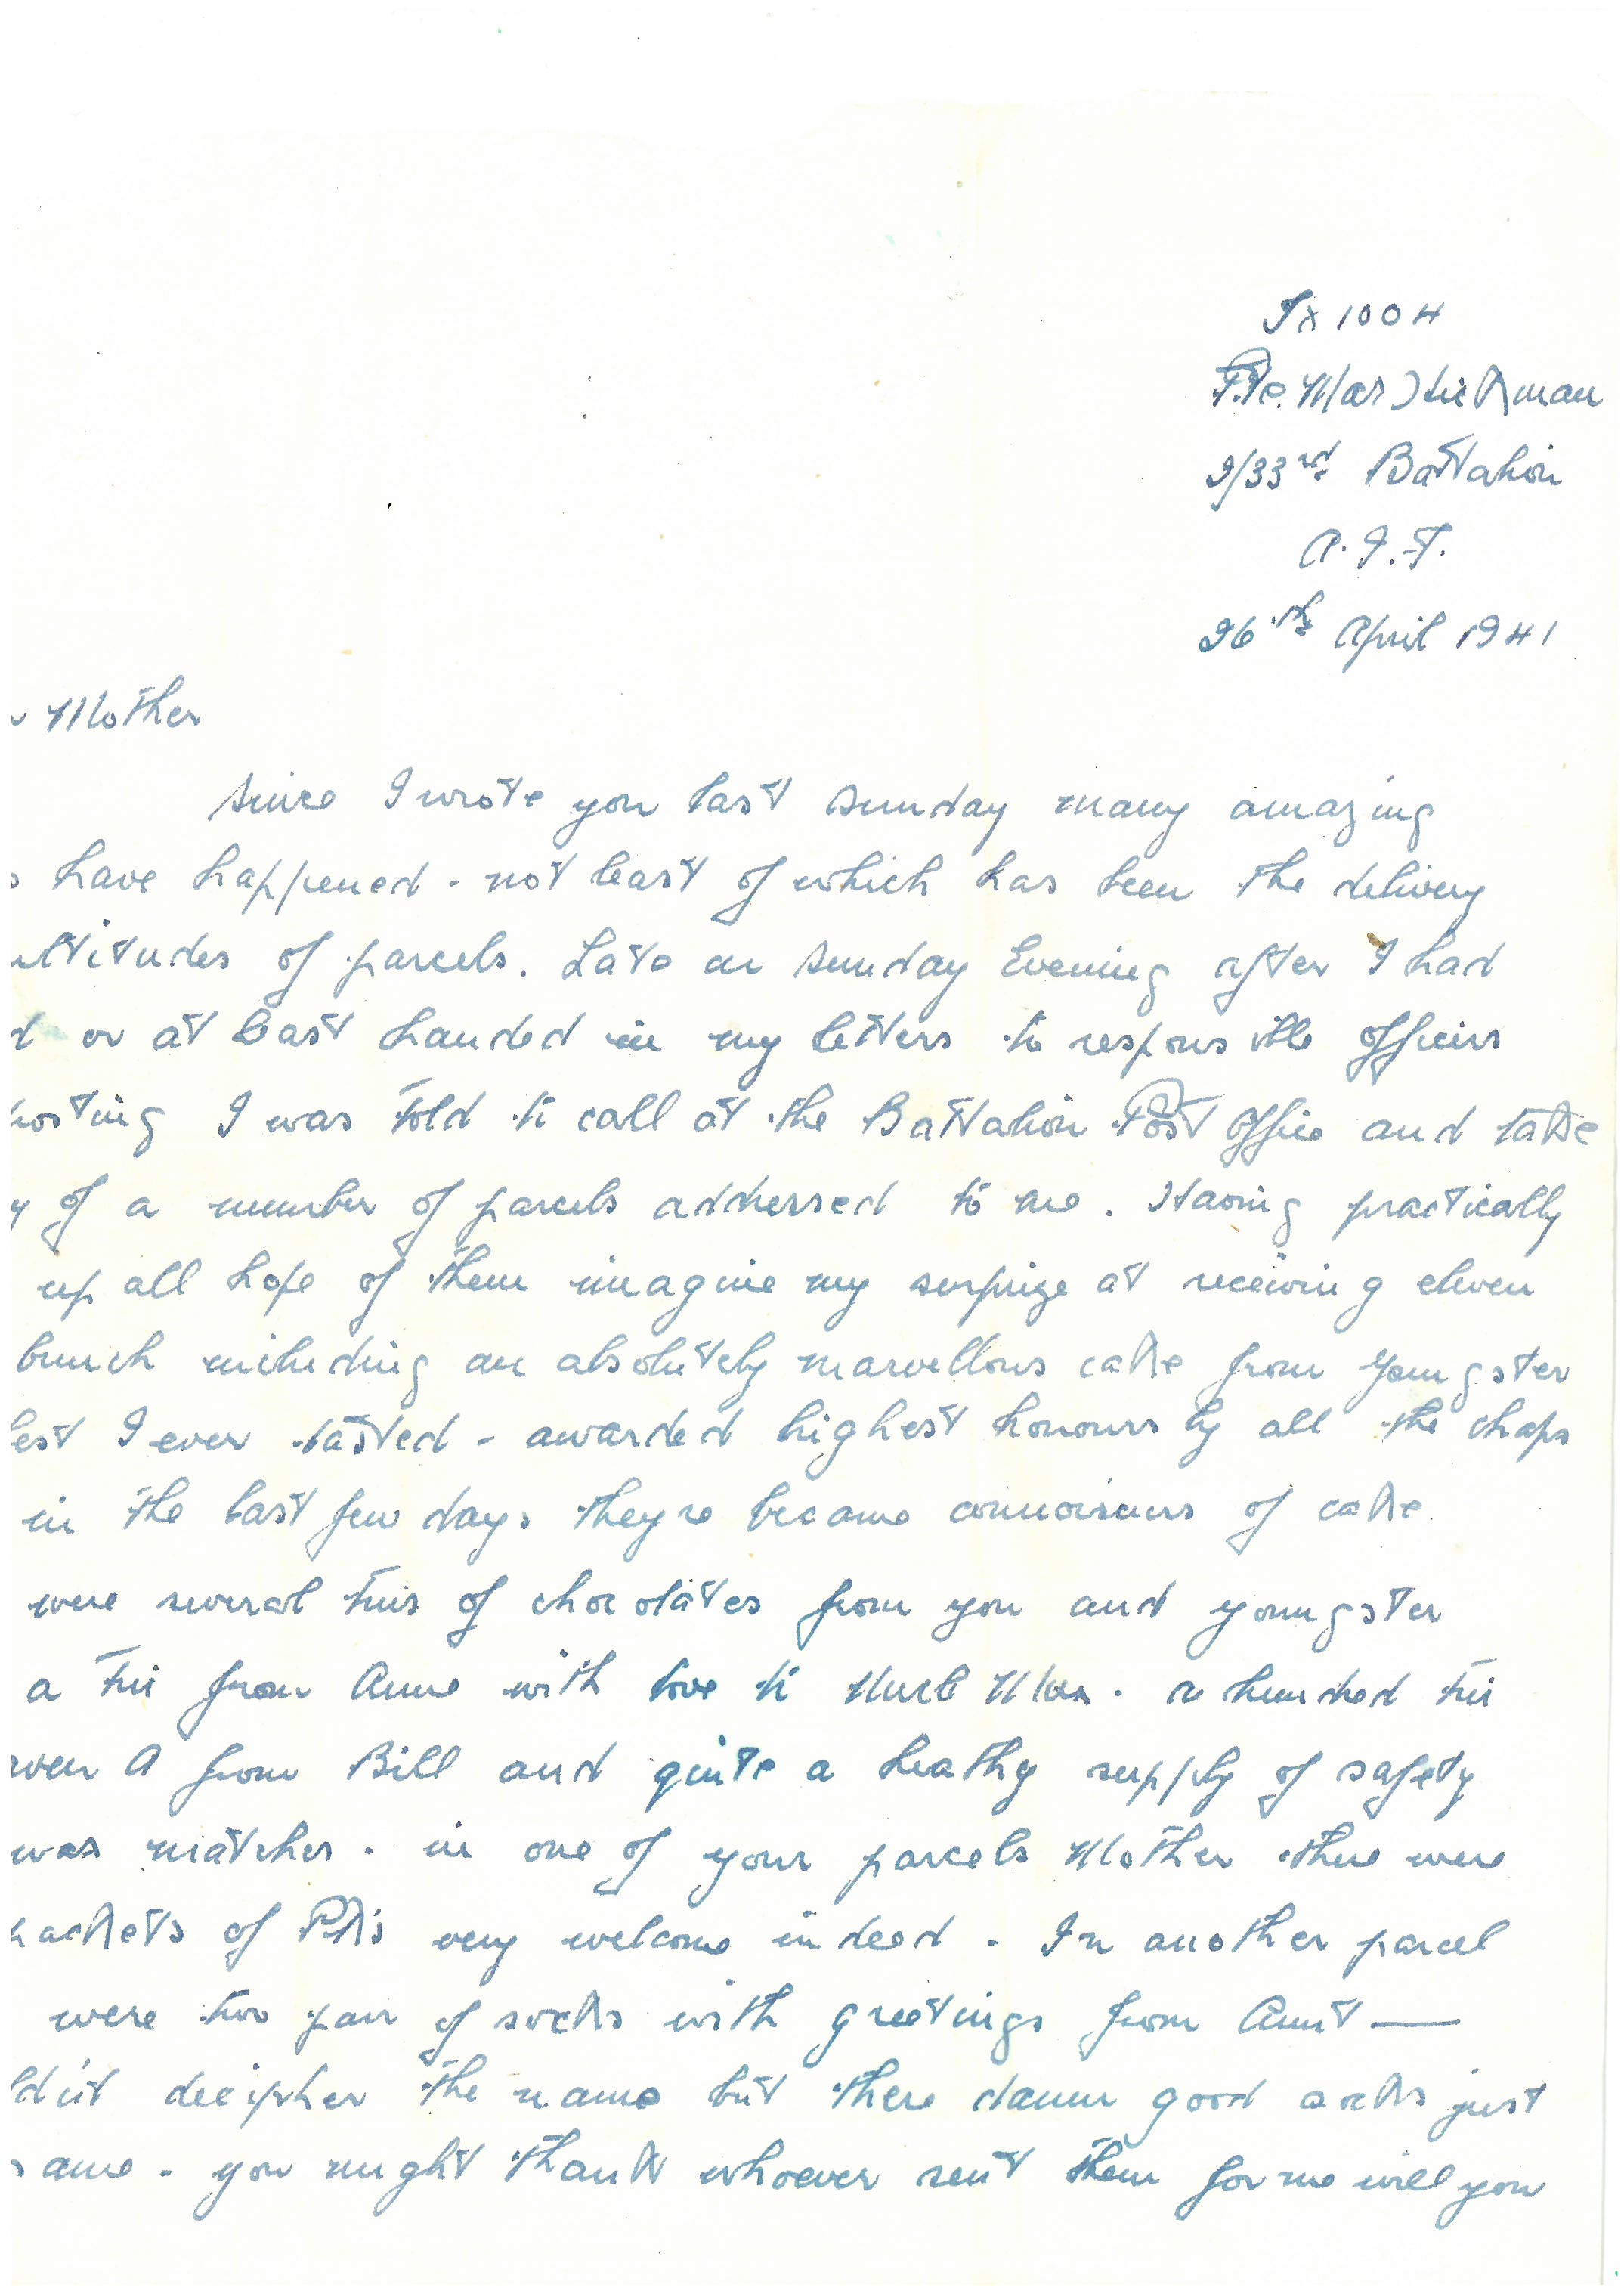 Tx 1004
Pte. Max Hickman
2/33rd Battalion
A.I.F.
26th April 1941
Mother
Since I wrote you last Sunday many amazing
have happened - not least of which has been the delivery
ultitudes of parcels. Late on Sunday Evening after I had
d or at least handed in my letters to responsible officers
posting I was told to call at the Battalion Post Office and take
y of a number of parcels addressed to me. Having practically
up all hope of them imagine my surprize at receiving eleven
bunch including an absolutely marvellous cake from Youngster
est I ever tasted - awarded highest honours by all the chaps
in the last few days they've become connoiseurs of cake.
were several tins of chocolates from you and youngster
a tin from Anne with love to Uncle Max. a hundred tin
aven A from Bill and quite a heathy supply of safety
wax matches. in one of your parcels Mother there were
packets of P.K's very welcome indeed. In another parcel
were two pair of socks with greetings from Aunt —
ldn't decipher the name but there damn good socks just
same - you might thank whoever sent them for me will you